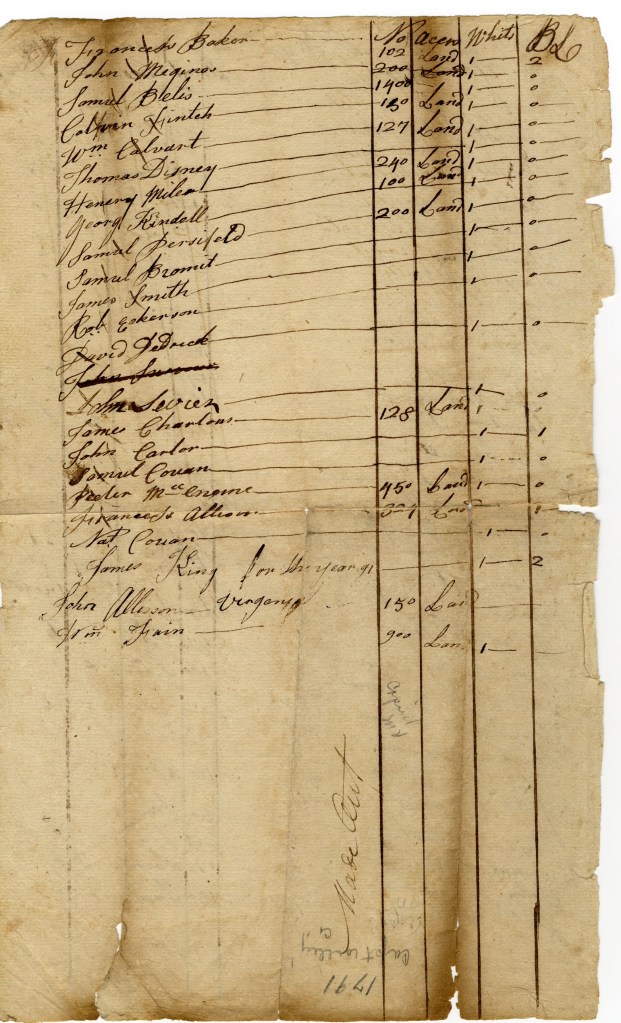 No Acers White BL
Francech Baker 102 Land 1 2
John Meginos 200 Land 1 0
Samul Blelis 1400 1 0
Calvin Finteh 150 Land 1 0
Wm Calvart 127 Land 1 0
Thomas Disney 240 Land 1 0
Henery Miles 100 Land 1 0
Georg Kindell 200 Land 1 0
Samul Persifeld 1 0
Samul Bromit 1 0
James Smith 1 0
Rob Eckerson
David Dedrick 1 0
John
John Sevier 1 0
James Charlons 128 Land 1 0
John Carlor 1 1
Samul Couan 1 0
Peter Mcc 450 Land 1 0
Francech Allison 334 Land 1
Nat Couan 1 0
James King for the year 91 1 2
John Allisson Virgany 150 Land
Wm Fain 900 Land 1
Made Out
1791